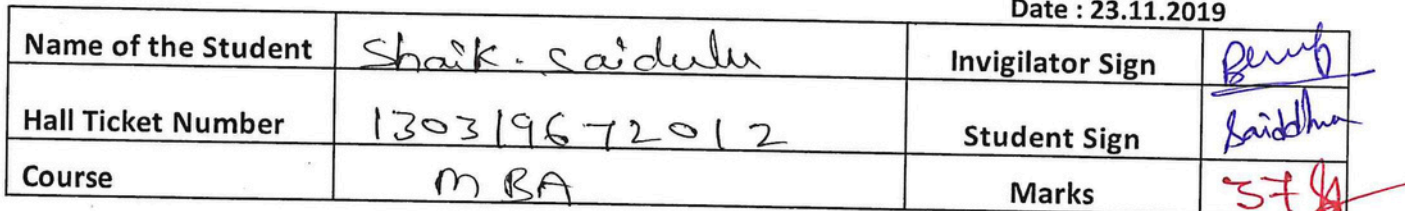 Date : 23.11.2019
Name of the Student Shaik. Saidulu Invigilator Sign
Hall Ticket Number 130319672012 Student Sign Saiddhua
Course MBA Marks 37